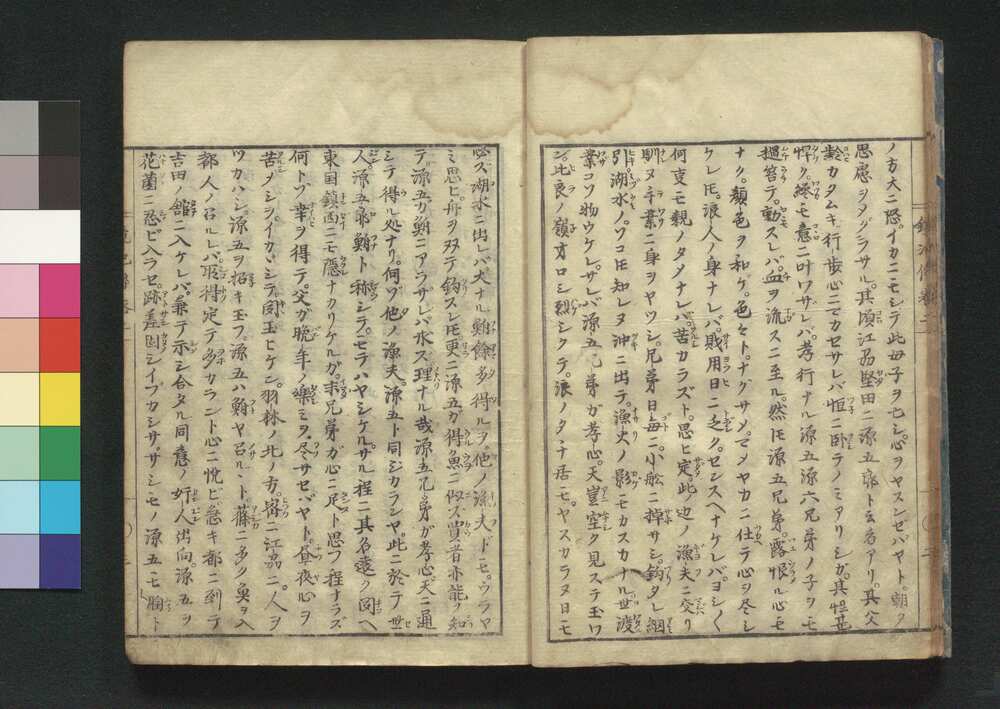 ノ方大ニ恐。イカニモシテ此母子ヲ亡シ。心ヲヤスンゼバヤト朝夕
思慮ヲメグラサル。其頃江刕堅田ニ源五郎ト云者アリ。其父
齢カタムキ行歩心ニマカセサレバ恒ニ臥ラノミアリシガ。其性甚
悍ク。終モ意ニ叶ワザレバ。孝行ナル源五源六兄弟ノ子ヲモ
撾笞テ。動スレバ血ヲ流スニ至ル。然𪜈源五兄弟。露恨ル心モ
ナク。顔色ヲ和ゲ。色々トナグサメ。マメヤカニ仕テ心ヲ尽シ
ケレ𪜈。浪人ノ身ナレバ。貲用日ニ乏ク。センスヘナケレバ。ヨシ〱
何叓モ親ノタメナレバ。苦カラズト。思ヒ定。此辺ノ漁夫ニ交リ
馴ヌ手業ニ身ヲヤツシ。兄弟日毎ニ。小舩ニ棹サシ。鈎タレ網
引湖水ノ。ソコ𪜈知レヌ沖ニ出テ。漁火ノ影モカスカナル世渡
業コソ物ウケレ。サレバ源五兄弟ガ孝心。天豈空ク見ステ玉ワ
ン。比良ノ嶺オロシ烈シクテ。浪ノタチ居モ。ヤスカラヌ日モ
必ズ湖水ニ出レバ大ナル鮒餘多得ルヲ。他ノ漁夫ドモ。ウラヤ
ミ思ヒ。舟ヲ双テ鈎スレ𪜈更ニ源五ガ得魚ニ似ズ買者亦能ノ知
テ。源五ガ鮒ニアラザレバ求ス理ナル哉源五兄弟ガ孝心天ニ通
シテ得ル処ナリ。何ゾ他ノ漁夫。源五ト同シカランヤ。此ニ於テ世
人。源五郎鮒ト称シテ。モテハヤシケル。サル程ニ其名遠ク囘ヘ
東国鎮西ニモ隠ナカリケルガ。末兄弟ガ心ニ足ト思フ程ナラズ
何トゾ幸ヲ得テ。父ガ晩年ノ樂ミヲ尽サセバヤト。昼夜心ヲ
苦ヲシテ。イカガシテ。囘玉ヒケン。羽林ノ北ノ方。密ニ江刕ニ。人ヲ
ツカハシ。源五ヲ招キ玉フ。源五ハ鮒ヤ召ルント。藤ニ多ク魚ヲ入
都人ノ召ルレバ。取得定テ多カラント心ニ悦ビ急キ都ニ到テ
吉田ノ舘ニ入ケレバ。兼テ示シ合タル同意ノ奸人出向。源五ヲ
花菌ニ忍ビ入ラセ。跡差固。シイブカシサ。サシモノ源五モ胸ト